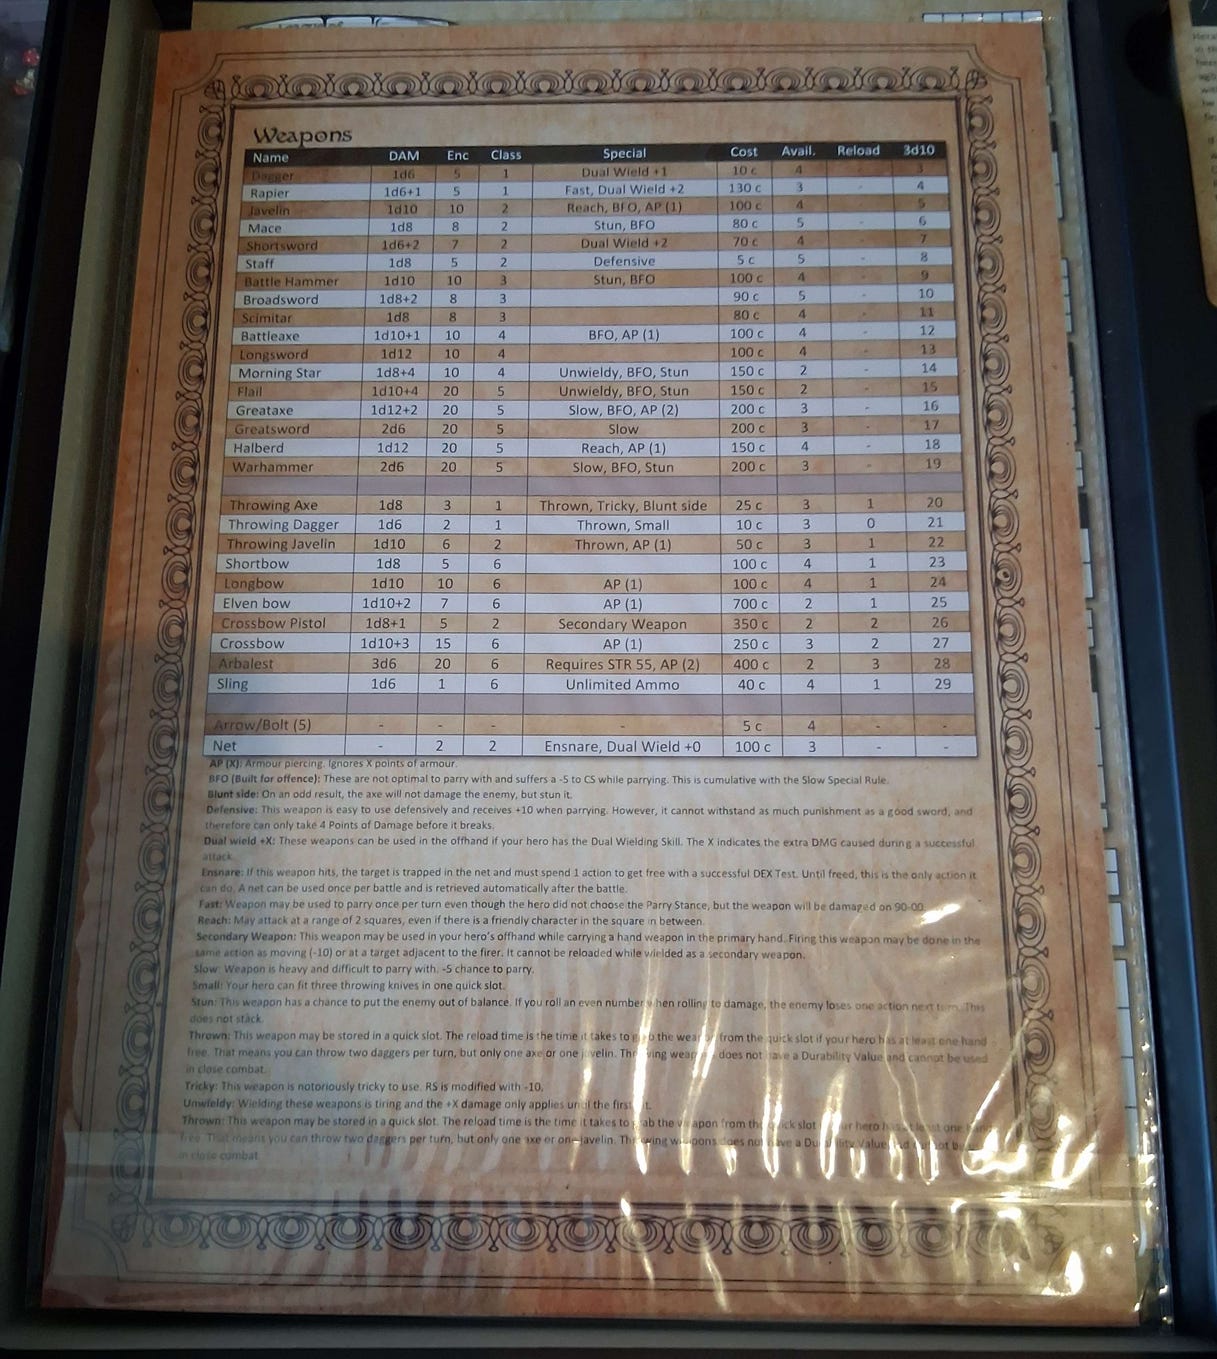 Weapons
Name DAM Enc Class Special Cost Avail. Reload 3d10
Dagger 1d6 5 1 Dual Wield +1 10 c 4 - 3
Rapier 1d6+1 5 1 Fast, Dual Wield +2 130 c 3 - 4
Javelin 1d10 10 2 Reach, BFO, AP (1) 100 c 4 - 5
Mace 1d8 8 2 Stun, BFO 80 c 5 - 6
Shortsword 1d6+2 7 2 Dual Wield +2 70 c 4 - 7
Staff 1d8 5 2 Defensive 5 c 5 - 8
Battle Hammer 1d10 10 3 Stun, BFO 100 c 4 - 9
Broadsword 1d8+2 8 3 90 c 5 - 10
Scimitar 1d8 8 3 80 c 4 - 11
Battleaxe 1d10+1 10 4 BFO, AP (1) 100 c 4 - 12
Longsword 1d12 10 4 100 c 4 - 13
Morning Star 1d8+4 10 4 Unwieldy, BFO, Stun 150 c 2 - 14
Flail 1d10+4 20 5 Unwieldy, BFO, Stun 150 c 2 - 15
Greataxe 1d12+2 20 5 Slow, BFO, AP (2) 200 c 3 - 16
Greatsword 2d6 20 5 Slow 200 c 3 - 17
Halberd 1d12 20 5 Reach, AP (1) 150 c 4 - 18
Warhammer 2d6 20 5 Slow, BFO, Stun 200 c 3 - 19
Throwing Axe 1d8 3 1 Thrown, Tricky, Blunt side 25 c 3 1 20
Throwing Dagger 1d6 2 1 Thrown, Small 10 c 3 0 21
Throwing Javelin 1d10 6 2 Thrown, AP (1) 50 c 3 1 22
Shortbow 1d8 5 6 100 c 4 1 23
Longbow 1d10 10 6 AP (1) 100 c 4 1 24
Elven bow 1d10+2 7 6 AP (1) 700 c 2 1 25
Crossbow Pistol 1d8+1 5 2 Secondary Weapon 350 c 2 2 26
Crossbow 1d10+3 15 6 AP (1) 250 c 3 2 27
Arbalest 3d6 20 6 Requires STR 55, AP (2) 400 c 2 3 28
Sling 1d6 1 6 Unlimited Ammo 40 c 4 1 29
Arrow/Bolt (5) - - - - 5 c 4 - -
Net - 2 2 Ensnare, Dual Wield +0 100 c 3 - -
AP (X): Armour piercing. Ignores X points of armour.
BFO (Built for offence): These are not optimal to parry with and suffers a -5 to CS while parrying. This is cumulative with the Slow Special Rule.
Blunt side: On an odd result, the axe will not damage the enemy, but stun it.
Defensive: This weapon is easy to use defensively and receives +10 when parrying. However, it cannot withstand as much punishment as a good sword, and
therefore can only take 4 Points of Damage before it breaks.
Dual wield +X: These weapons can be used in the offhand if your hero has the Dual Wielding Skill. The X indicates the extra DMG caused during a successful
attack.
Ensnare: If this weapon hits, the target is trapped in the net and must spend 1 action to get free with a successful DEX Test. Until freed, this is the only action it
can do. A net can be used once per battle and is retrieved automatically after the battle.
Fast: Weapon may be used to parry once per turn even though the hero did not choose the Parry Stance, but the weapon will be damaged on 90-00.
Reach: May attack at a range of 2 squares, even if there is a friendly character in the square in between.
Secondary Weapon: This weapon may be used in your hero's offhand while carrying a hand weapon in the primary hand. Firing this weapon may be done in the
same action as moving (-10) or at a target adjacent to the firer. It cannot be reloaded while wielded as a secondary weapon.
Slow: Weapon is heavy and difficult to parry with. -5 chance to parry.
Small: Your hero can fit three throwing knives in one quick slot.
Stun: This weapon has a chance to put the enemy out of balance. If you roll an even number when rolling to damage, the enemy loses one action next turn. This
does not stack.
Thrown: This weapon may be stored in a quick slot. The reload time is the time it takes to the weapon from the quick slot if your hero has at least one hand
free. That means you can throw two daggers per turn, but only one axe or one javelin. Throwing weapons does not have a Durability Value and cannot be used
in close combat.
Tricky: This weapon is notoriously tricky to use. RS is modified with -10.
Unwieldy: Wielding these weapons is tiring and the +X damage only applies until the first
Thrown: This weapon may be stored in a quick slot. The reload time is the time it takes to grab the weapon from the quick slot your hero has at least one hand
free. That means you can throw two daggers per turn, but only one axe or one javelin. Throwing weapons does not have a Durability Value and cannot be
in close combat